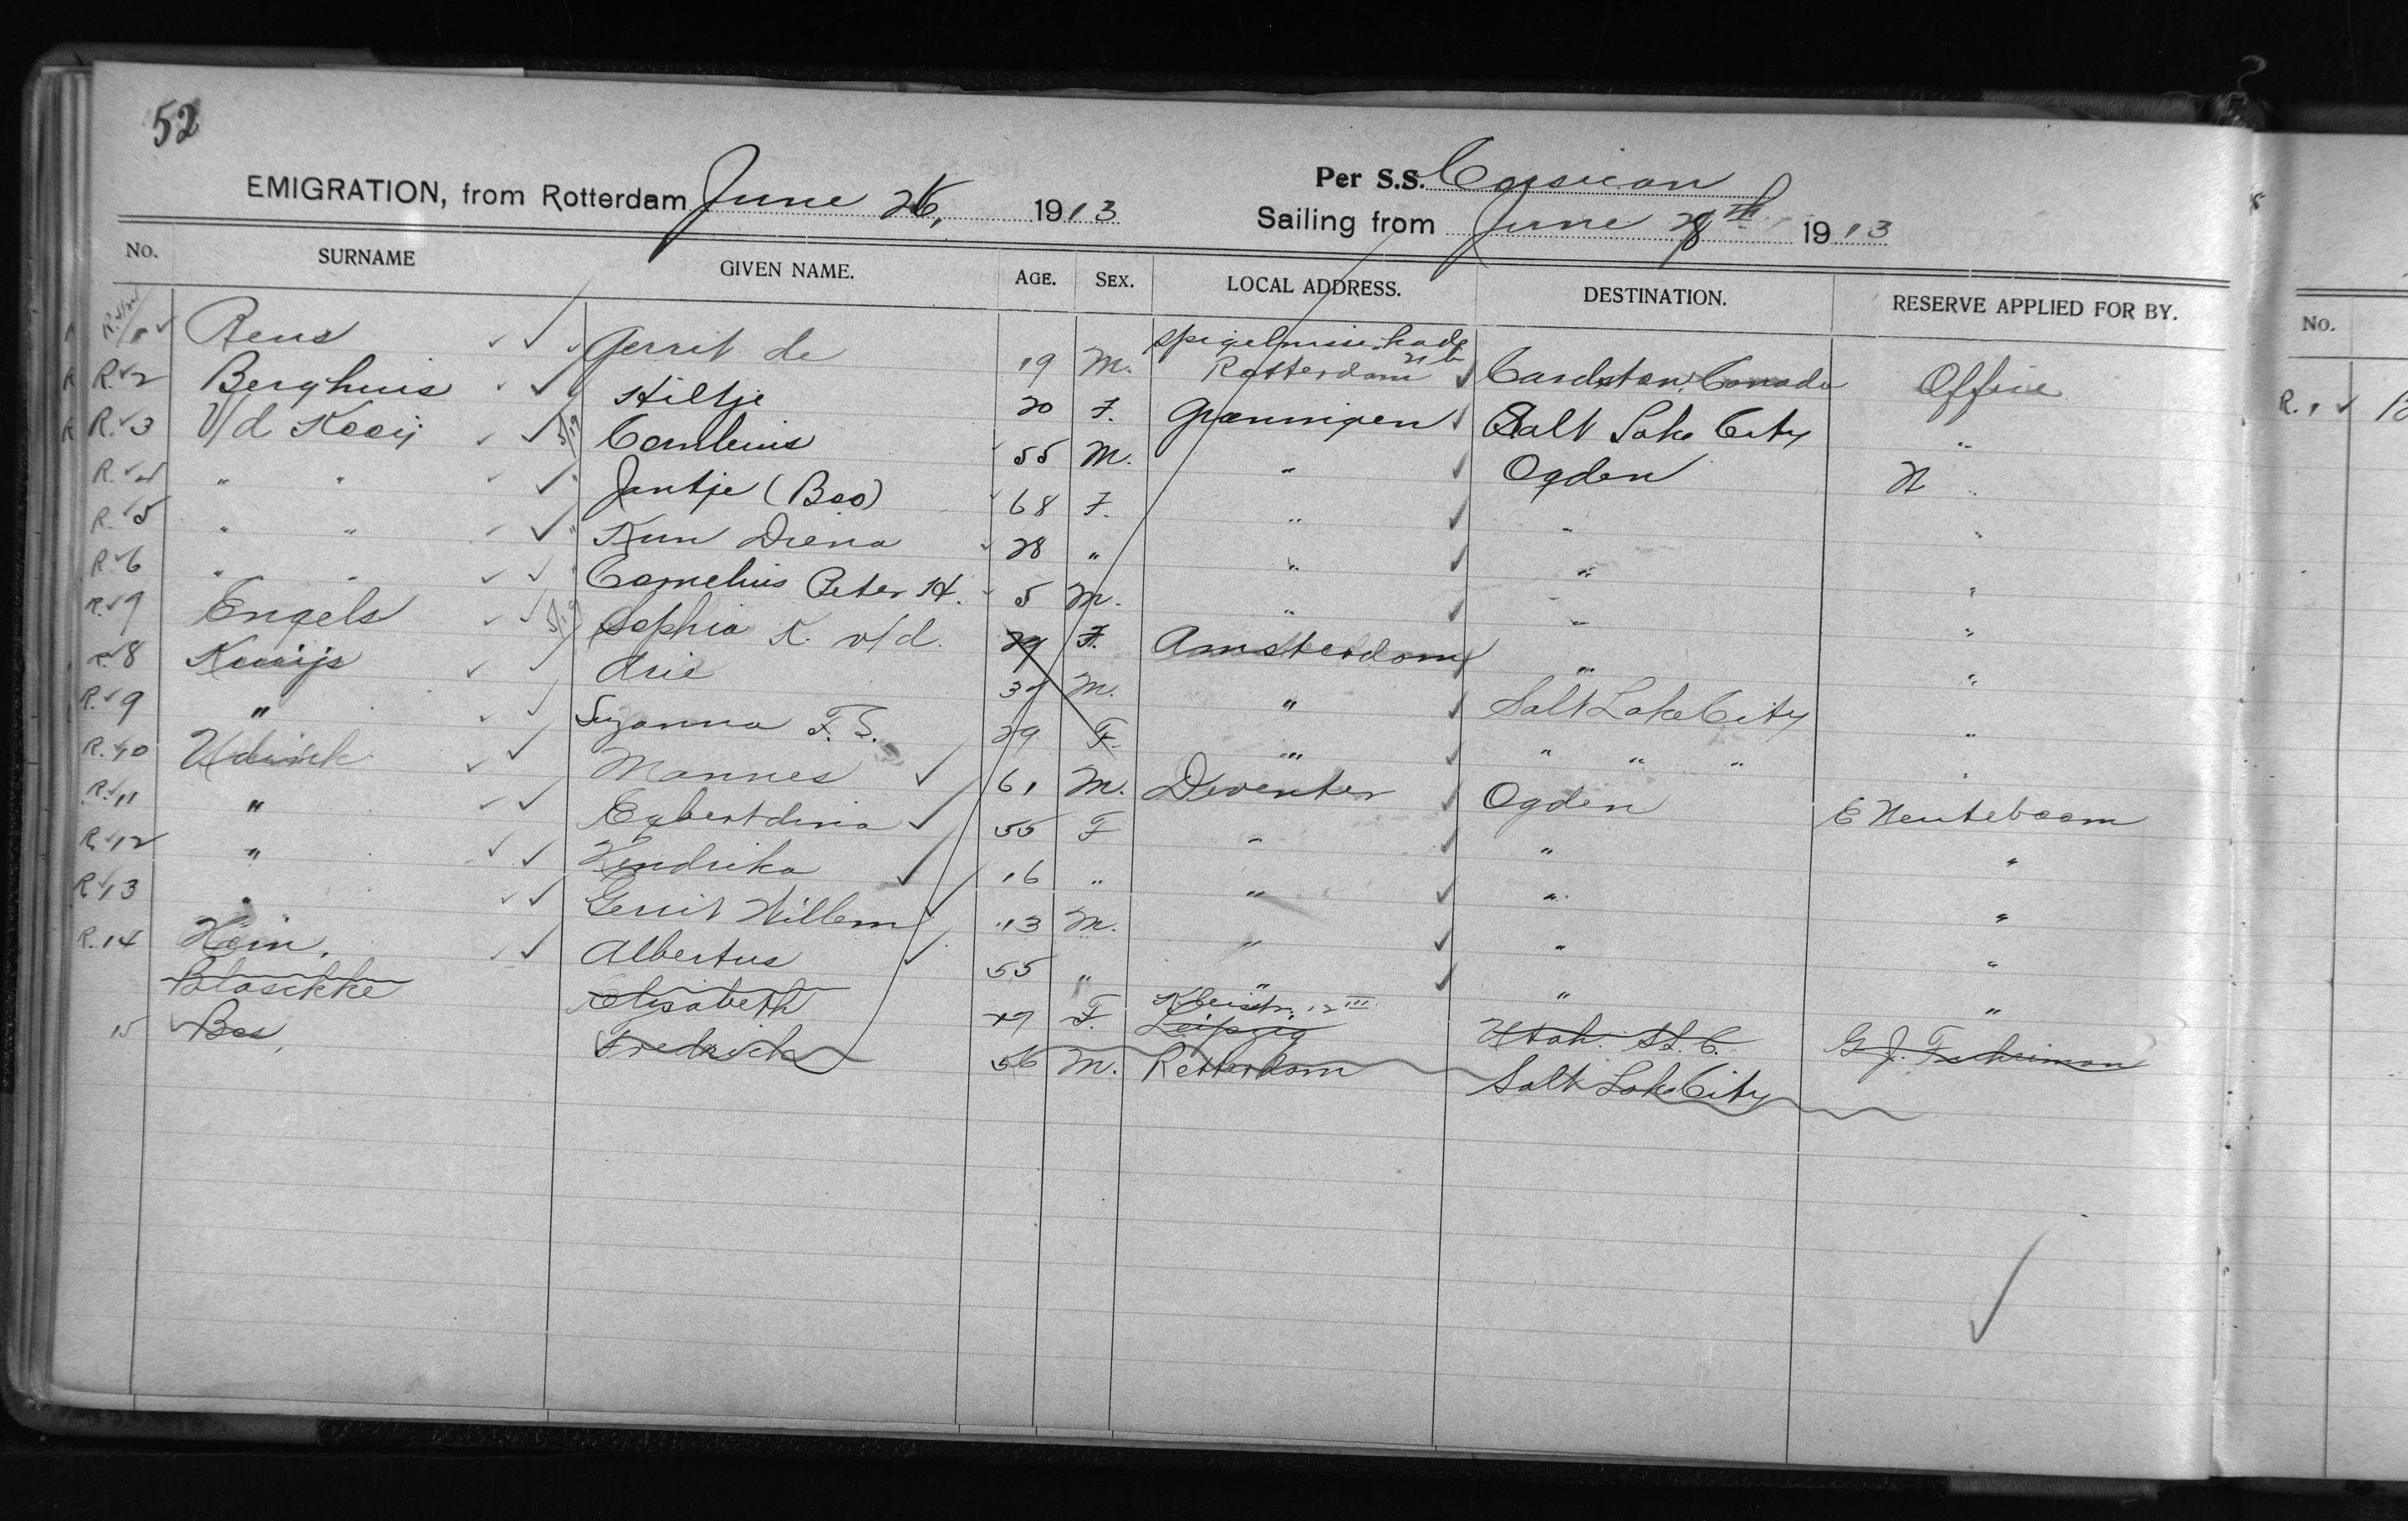 52
EMIGRATION, from Rotterdam June 26, 1913 Per S.S. Corsican
Sailing from June 28th 1913
No. SURNAME GIVEN NAME. AGE. SEX. LOCAL ADDRESS. DESTINATION. RESERVE APPLIED FOR BY.
No.
1 Reus Gerrit de 19 M. Rotterdam 21b Cardston, Canada Office
R. 2 Berghuis Hiltje 20 F. Groningen Salt Lake City "
R. 3 V/d Kooij Cornelius 55 M. " Ogden "
R. 4 " " Jantje (Bos) 68 F. " " "
R. 5 " " Kun Diena 28 " " " "
R. 6 " " Cornelius Peter H. 5 M. " " "
R. 7 Engels Sophia K. v/d. 29 F. Amsterdam " "
R. 8 Kuijs Arie 37 M. " Salt Lake City "
R. 9 " Suzanna F. S. 29 F. " " " " "
R. 10 Udink Mannes 61 M. Deventer Ogden E Neuteboom
R. 11 " Egbertdina 55 F " " "
R. 12 " Hendrika 16 " " " "
R. 13 " Gerrit Willem 13 M. " " "
R. 14 Hein, Albertus 55 " " " "
Blaschke Elisabeth F. Leipzig Utah. S.L.C. G. J. Fuhriman
15 Bos, Fredrick 56 M. Rotterdam Salt Lake City
R. 1